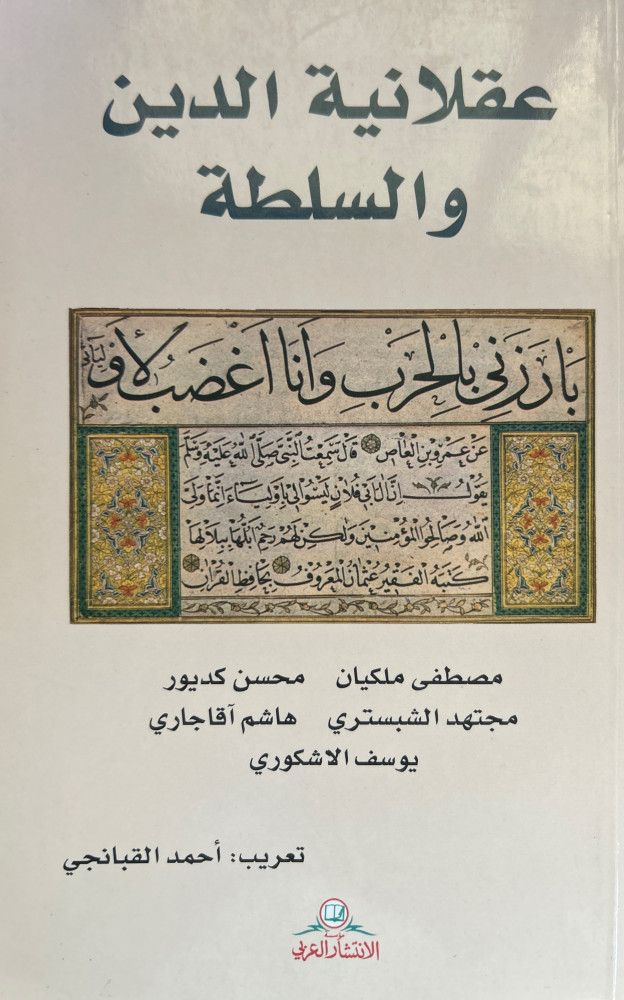 عقلانية الدين
والسلطة
بَارَزَنِي بِالْحَرْبِ وَأَنَا أَغْضَبُ لِأَوْلِيَائِي
عَنْ عَمْرِو بْنِ الْعَاصِ قَالَ سَمِعْتُ النَّبِيَّ صَلَّى اللَّهُ عَلَيْهِ وَسَلَّمَ
يَقُولُ إِنَّ آلَ أَبِي فُلَانٍ لَيْسُوا لِي بِأَوْلِيَاءَ إِنَّمَا وَلِيِّيَ
اللَّهُ وَصَالِحُو الْمُؤْمِنِينَ وَلَكِنْ لَهُمْ رَحِمٌ أَبُلُّهَا بِبِلَالِهَا
كَتَبَهُ الْفَقِيرُ عُثْمَانُ الْمَعْرُوفُ بِحَافِظِ الْقُرْآنِ
مصطفى ملكيان محسن كديور
مجتهد الشبستري هاشم آقاجاري
يوسف الاشكوري
تعريب: أحمد القبانجي
مؤسسة
الانتشار العربي